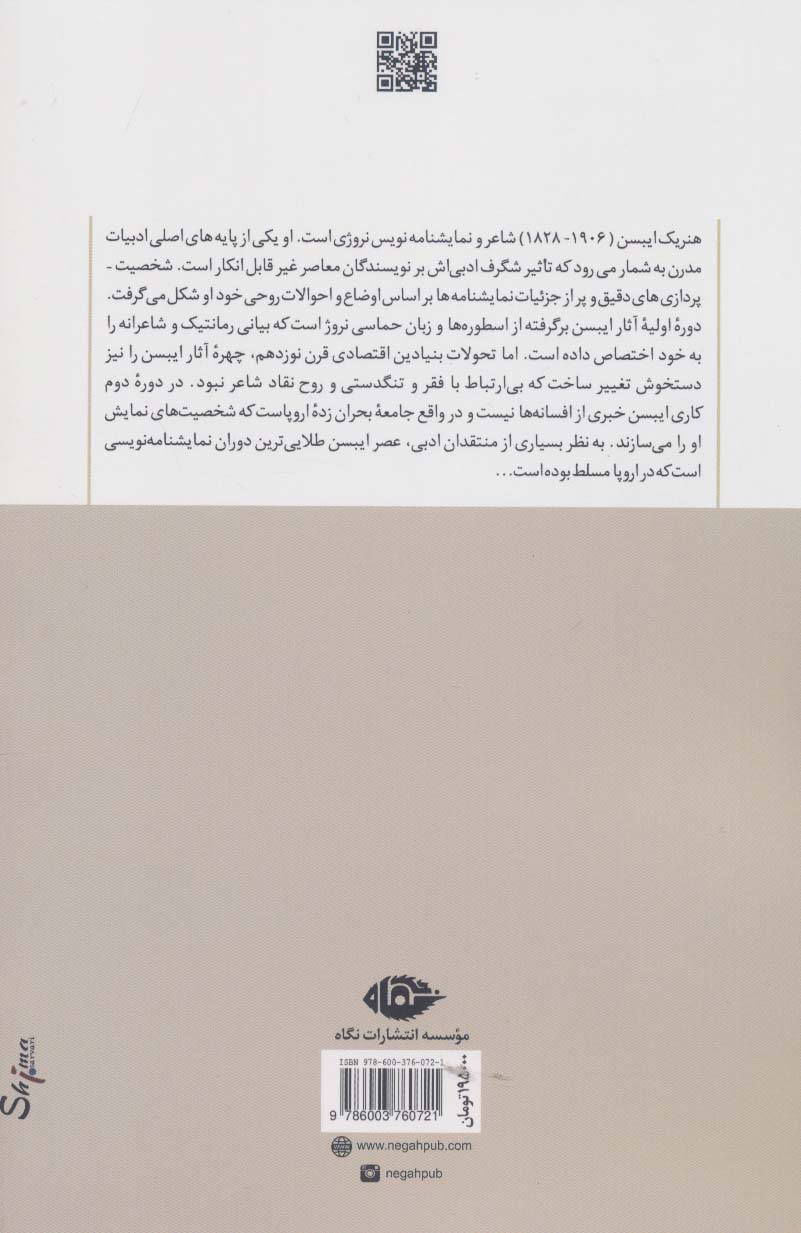 هنریک ایبسن (۱۹۰۶- ۱۸۲۸) شاعر و نمایشنامه نویس نروژی است. او یکی از پایه های اصلی ادبیات
مدرن به شمار می رود که تأثیر شگرف ادبی‌اش بر نویسندگان معاصر غیر قابل انکار است. شخصیت -
پردازی های دقیق و پر از جزئیات نمایشنامه ها بر اساس اوضاع و احوالات روحی خود او شکل می‌گرفت.
دورۀ اولیۀ آثار ایبسن برگرفته از اسطوره‌ها و زبان حماسی نروژ است که بیانی رمانتیک و شاعرانه را
به خود اختصاص داده است. اما تحولات بنیادین اقتصادی قرن نوزدهم، چهرۀ آثار ایبسن را نیز
دستخوش تغییر ساخت که بی‌ارتباط با فقر و تنگدستی و روح نقاد شاعر نبود. در دورۀ دوم
کاری ایبسن خبری از افسانه‌ها نیست و در واقع جامعۀ بحران زدۀ اروپاست که شخصیت‌های نمایش
او را می‌سازند. به نظر بسیاری از منتقدان ادبی، عصر ایبسن طلایی‌ترین دوران نمایشنامه‌نویسی
است که در اروپا مسلط بوده است...
نگاه
مؤسسه انتشارات نگاه
ISBN 978-600-376-072-1
9 786003 760721
تومان
www.negahpub.com
negahpub
Shima
sarvari